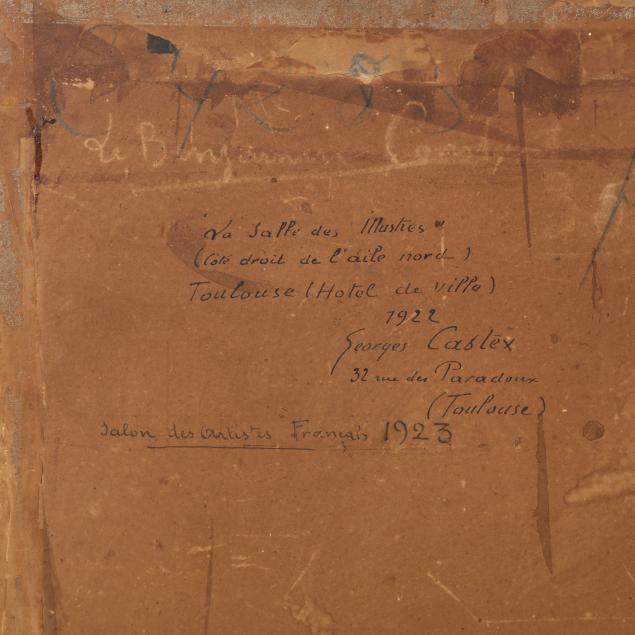 Le Benjamin Const
"La Salle des Illustres"
(Coté droit de l'aile nord)
Toulouse (Hotel de ville)
1922
Georges Castex
32 rue des Paradoux
(Toulouse)
Salon des Artistes Français 1923